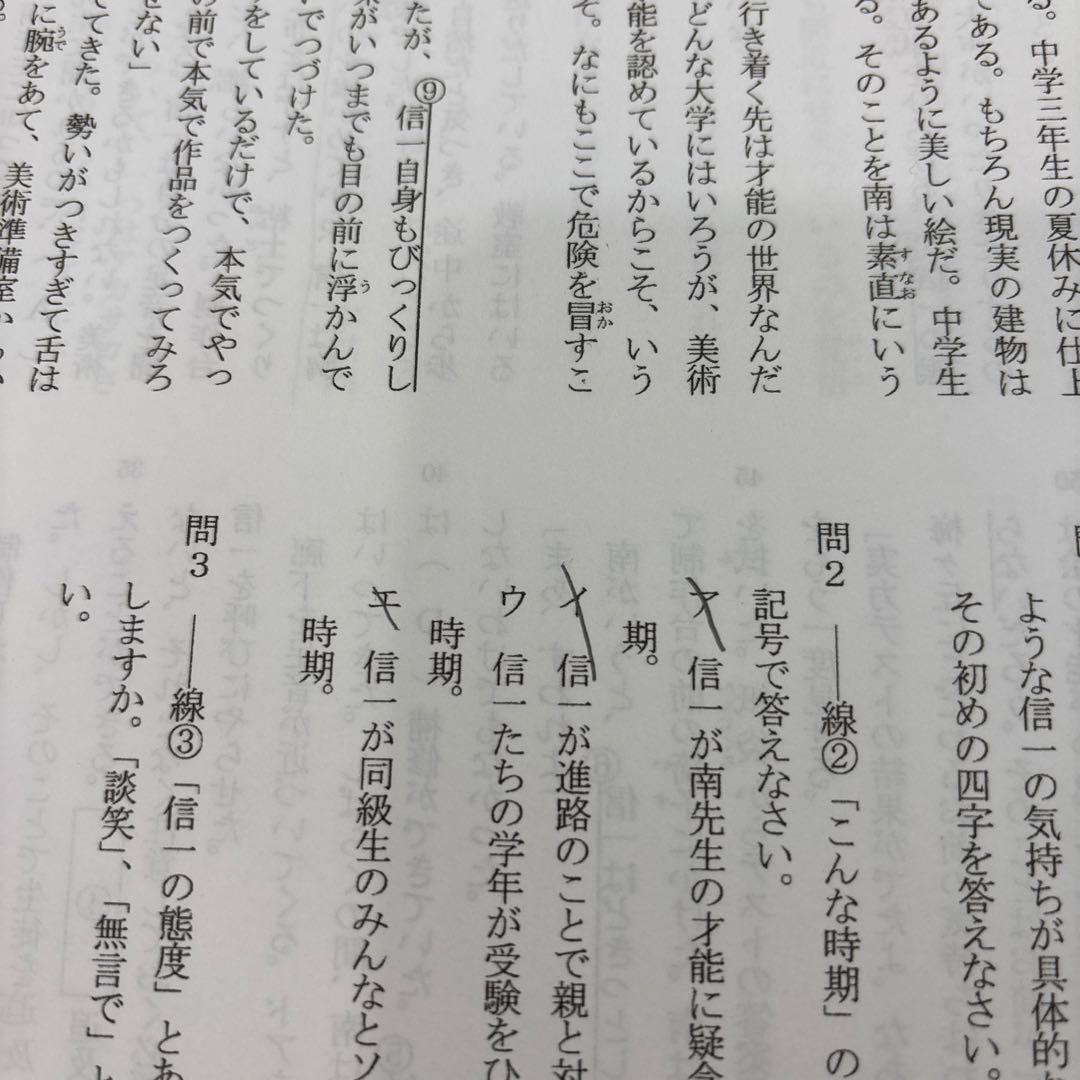 る。中学三年生の夏休みに仕上
である。もちろん現実の建物は
あるように美しい絵だ。中学生
る。そのことを南は素直にいう
すなお
行き着く先は才能の世界なんだ
どんな大学にはいろうが、美術
能を認めているからこそ、いう
そ。なにもここで危険を冒すこ
おか
たが、⑨信一自身もびっくりし
がいつまでも目の前に浮かんで
う
でつづけた。
をしているだけで、本気でやっ
の前で本気で作品をつくってみろ
せない」
てきた。勢いがつきすぎて舌は
に腕をあて、美術準備室
うで
ような信一の気持ちが具体的
その初めの四字を答えなさい。
問2 ――線②「こんな時期」の
記号で答えなさい。
ア 信一が南先生の才能に疑念
期。
イ 信一が進路のことで親と対
ウ 信一たちの学年が受験をひ
時期。
エ 信一が同級生のみんなとソ
時期。
問3 ――線③「信一の態度」とあ
しますか。「談笑」、「無言で」と
い。